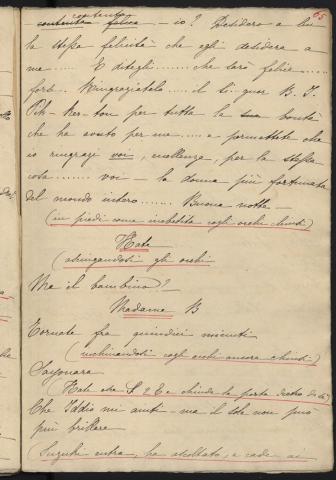 65
contento
contento felice – io? Desidero a lui
la stessa felicità che egli desidera a
me .... E ditegli .... che sarò felice ....
forte. Ringraziatelo .... il Signor B. F.
Pik-Ker-ton per tutta la sua bontà
che ha avuto per me .... e permettete che
io ringrazi voi, eccellenza, per la stessa
cosa .... voi – la donna più fortunata
del mondo intero .... Buona notte –
(in piedi come inebetita cogli occhi chiusi)
Kate
(asciugandosi gli occhi
Ma il bambino? –
Madame B
Tornate fra quindici minuti
(inchinandosi cogli occhi ancora chiusi)
Sayonara
(Kate esce e chiude la porta dietro di sè)
Che Iddio mi aiuti – ma il Sole non può
più brillare
(Suzuki entra, ha ascoltato, e cade ai